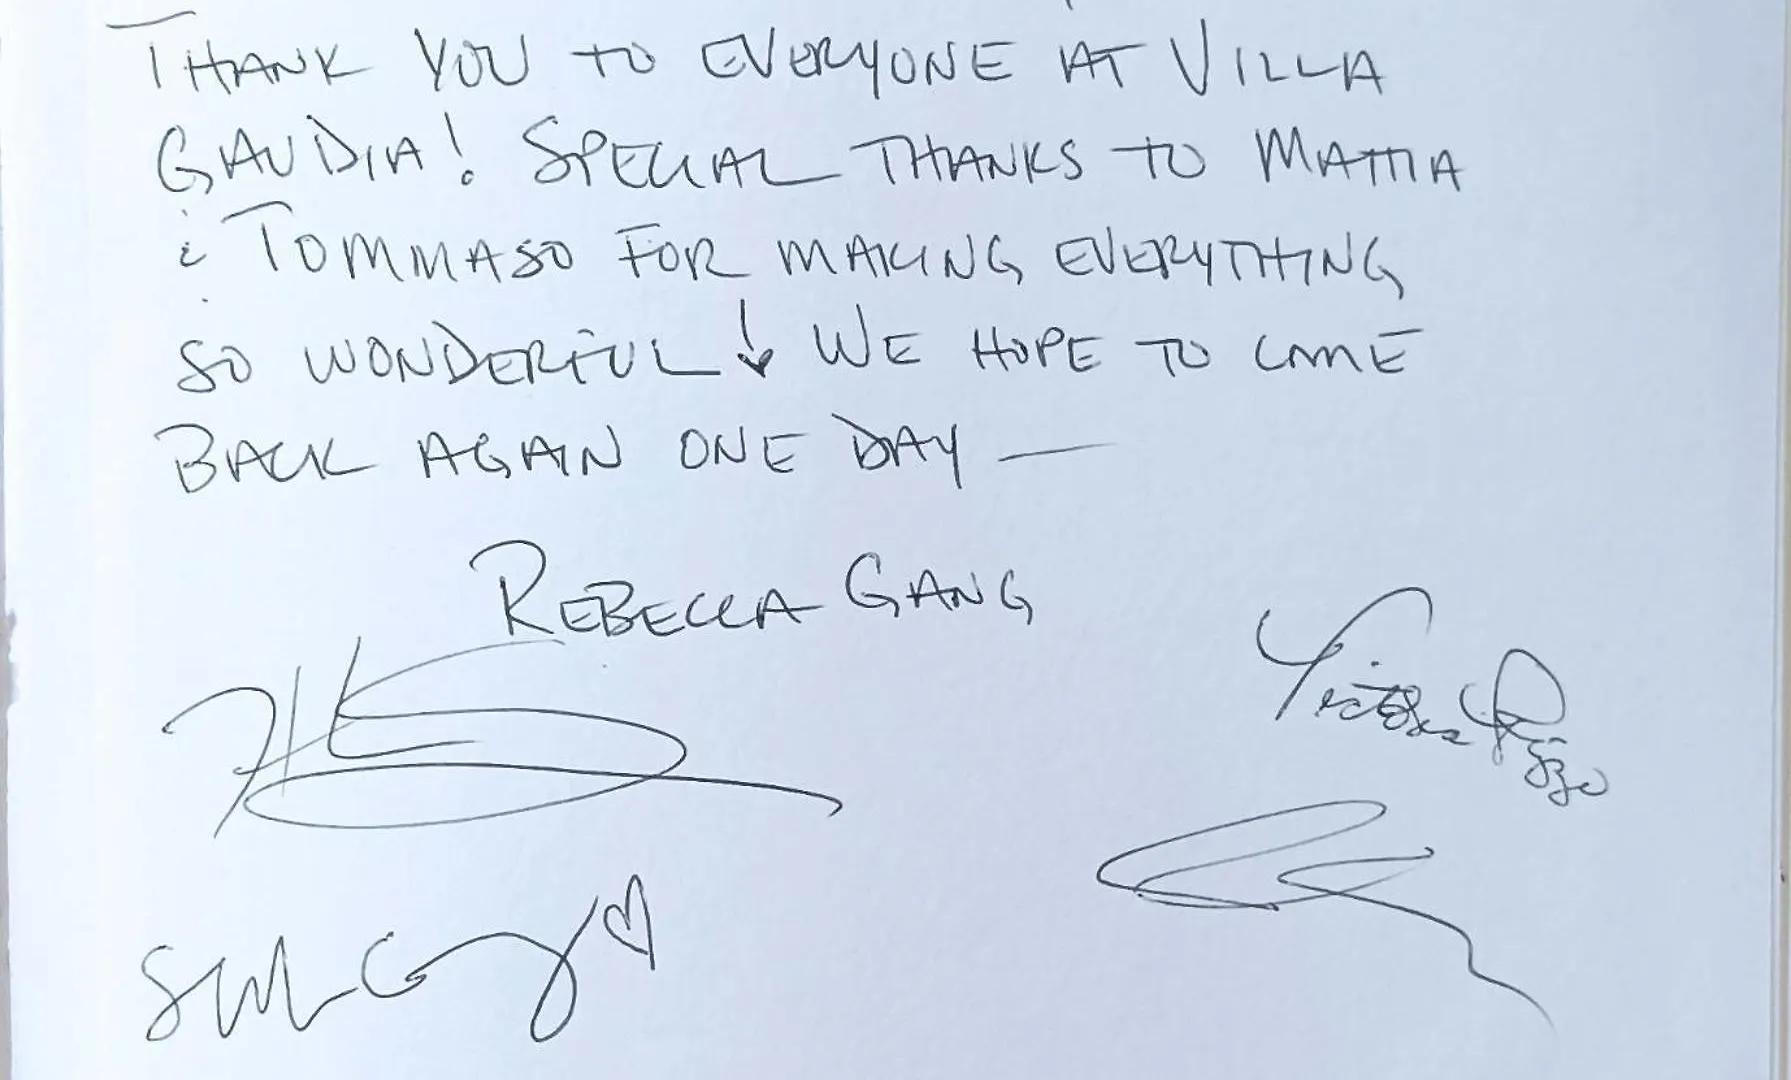 THANK YOU TO EVERYONE AT VILLA
GAUDIA! SPECIAL THANKS TO MATTIA
& TOMMASO FOR MAKING EVERYTHING
SO WONDERFUL! WE HOPE TO COME
BACK AGAIN ONE DAY —
REBECCA GANG
Victoria Rizzo